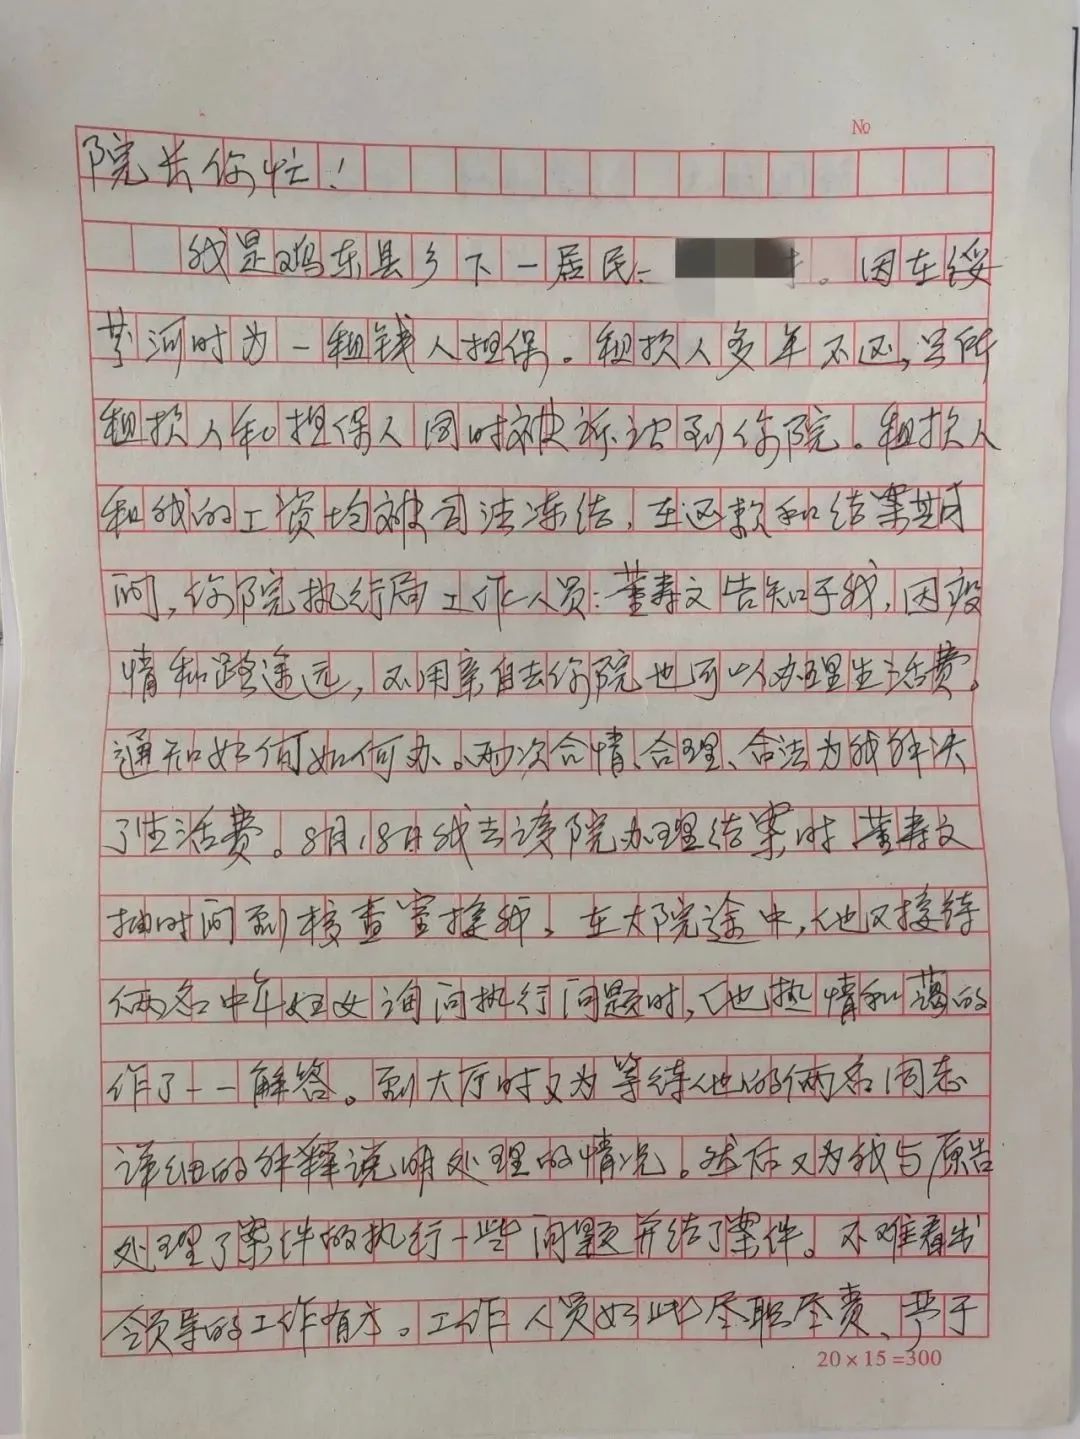 №
院长你忙！
我是鸡东县乡下一居民：。因在绥
芬河时为一租钱人担保。租损人多年不还，导所
租损人和担保人同时被诉讼到你院。租损人
和我的工资均被司法冻结，在还款和结案期
间，你院执行局工作人员：董寿文告知于我，因疫
情和路途远，不用亲自去你院也可以办理生活费。
通知如何如何办。两次合情、合理、合法为我解决
了生活费。8月18日我去该院办理结案时董寿文
抽时间到核查室接我。在大院途中，他又接待
俩名中年妇女询问执行问题时，他热情和蔼的
作了一一解答。到大厅时又为等待他的俩名同志
详细的解释说明处理的情况。然后又为我与原告
处理了案件的执行一些问题并结了案件。不难看出
领导的工作有方。工作人员如此尽职尽责、严于
20×15=300